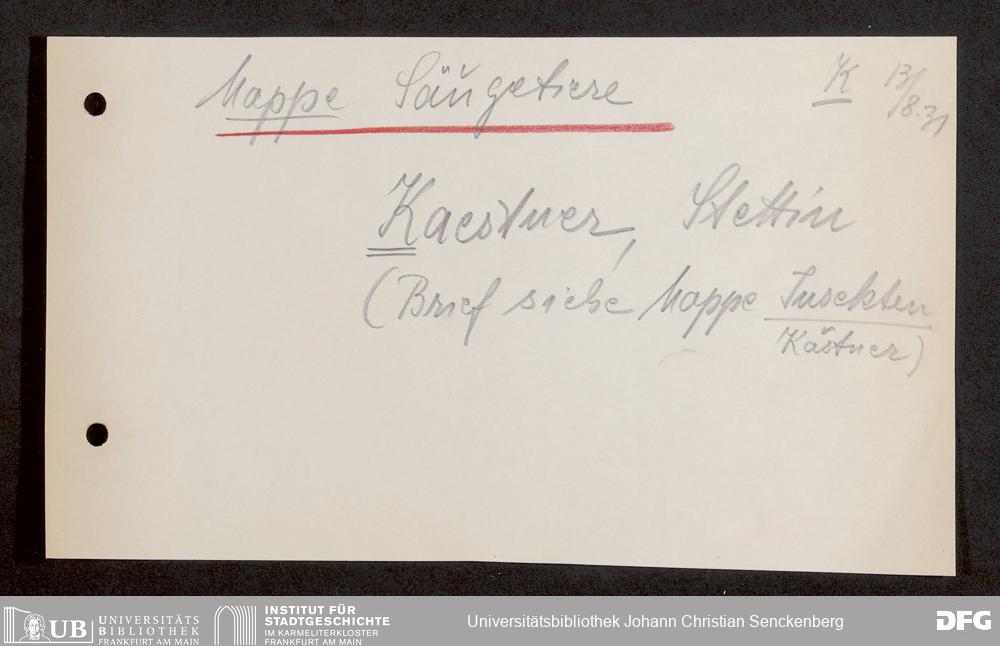 Mappe Säugetiere
K 13/8.31
Kaestner, Stettin
(Brief siehe Mappe Insekten
Kästner)
UB UNIVERSITÄTS
BIBLIOTHEK
FRANKFURT AM MAIN
INSTITUT FÜR
STADTGESCHICHTE
IM KARMELITERKLOSTER
FRANKFURT AM MAIN
Universitätsbibliothek Johann Christian Senckenberg
DFG